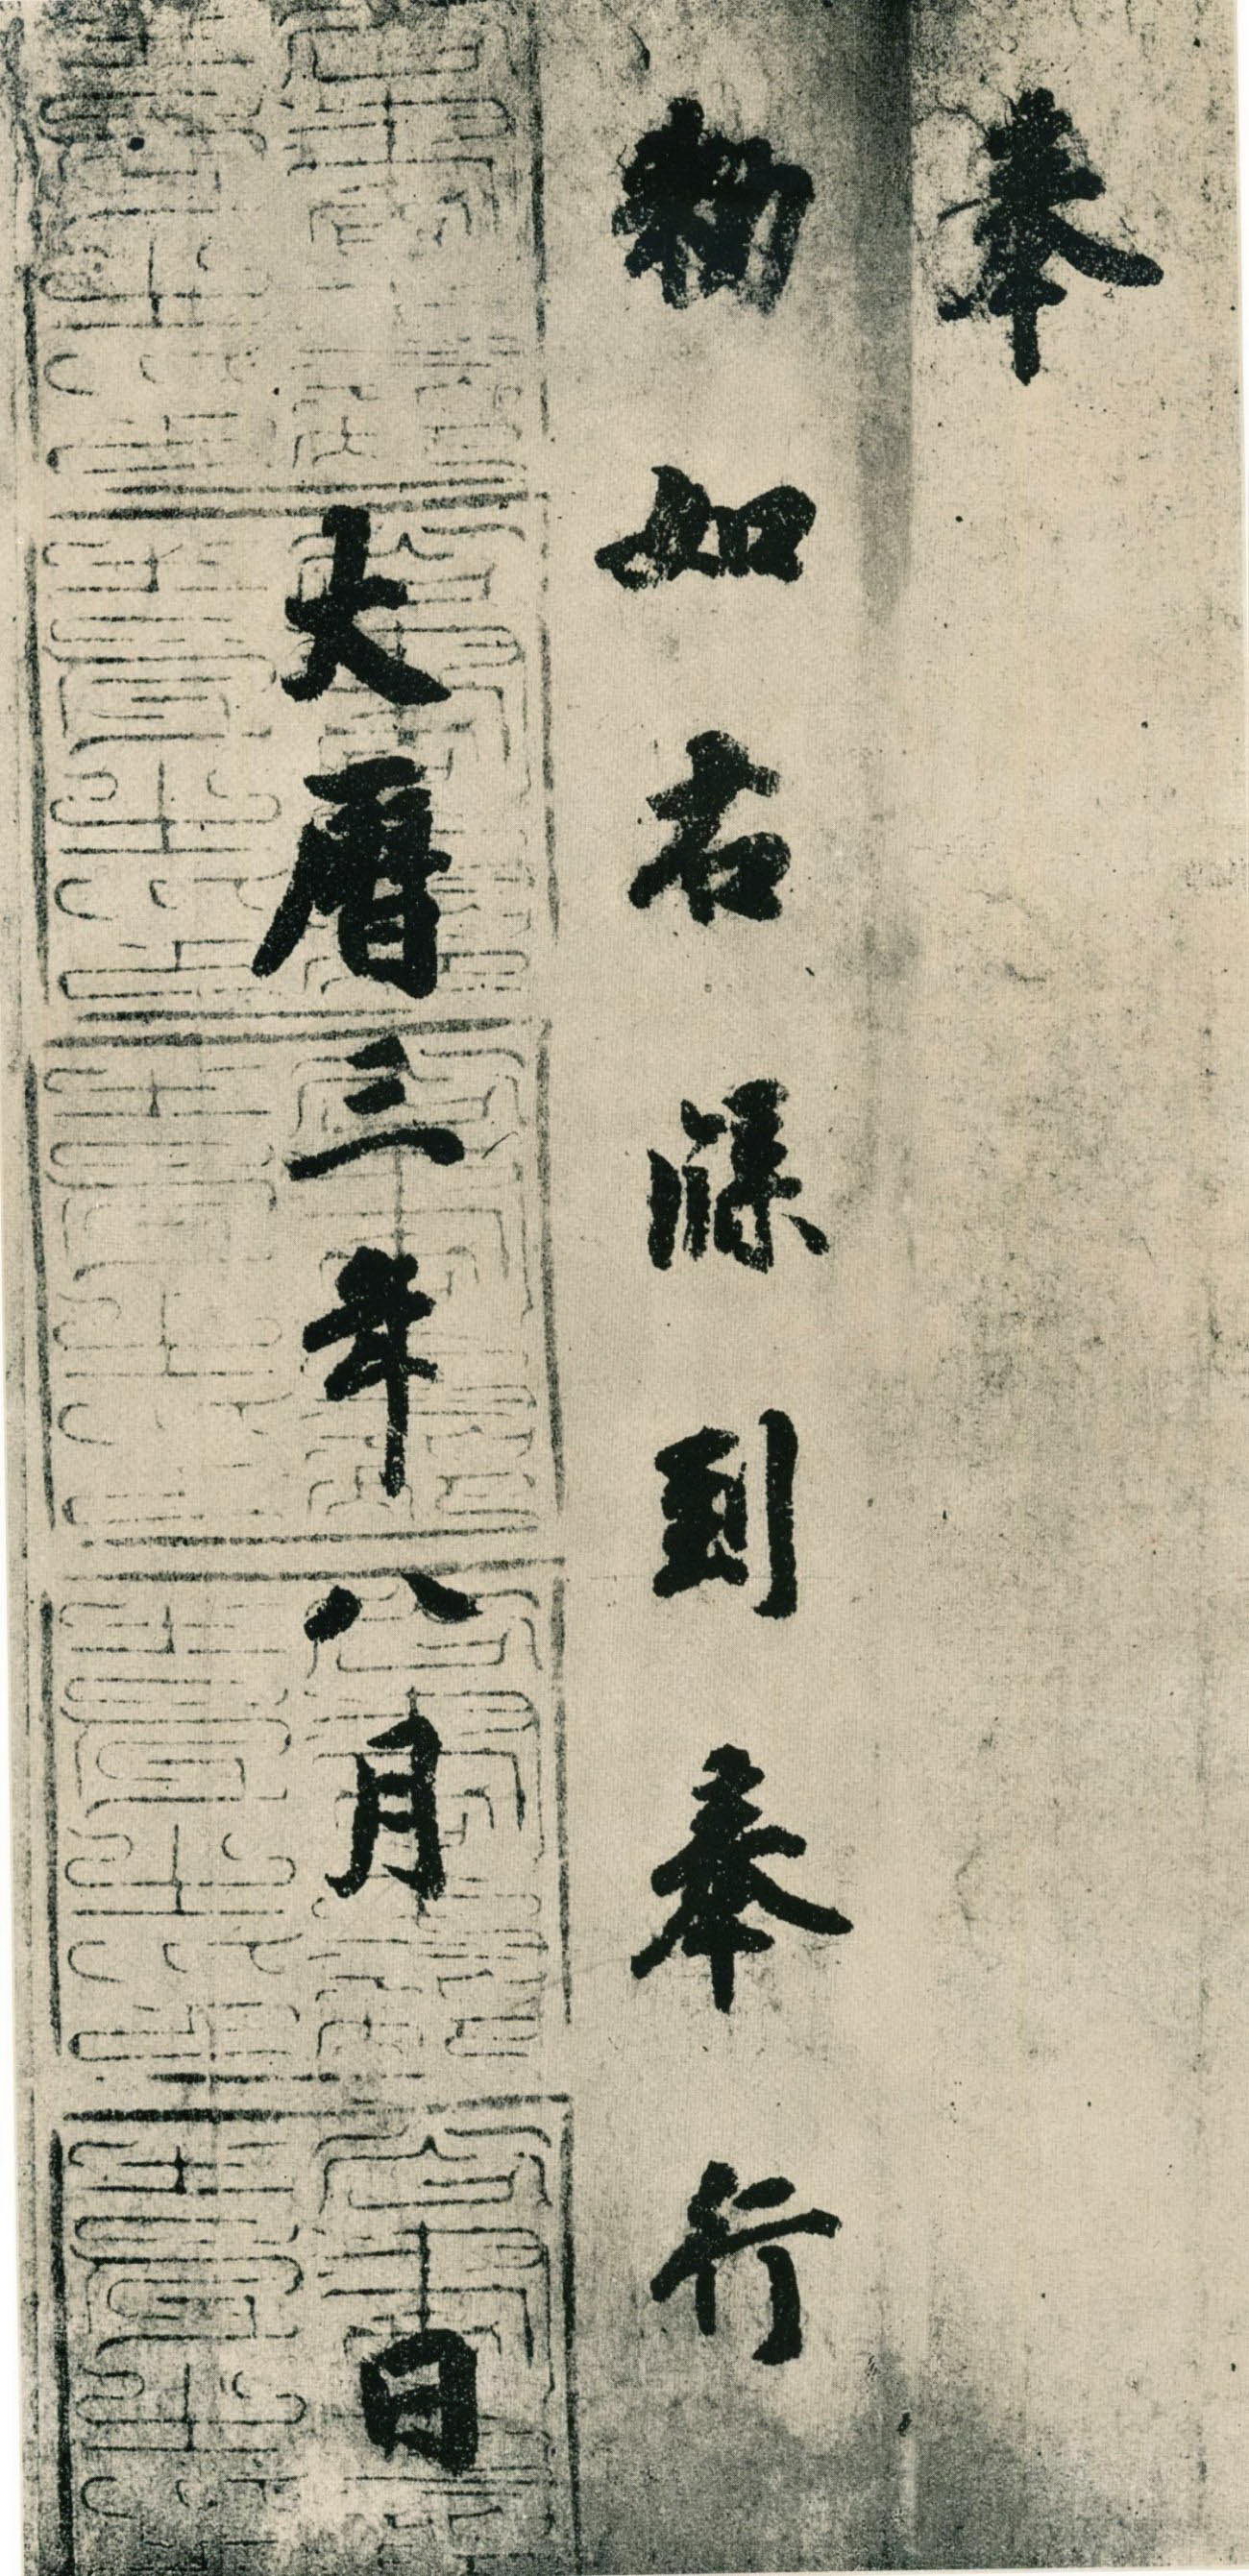 奉
勅如右牒到奉行
大曆三年八月 日